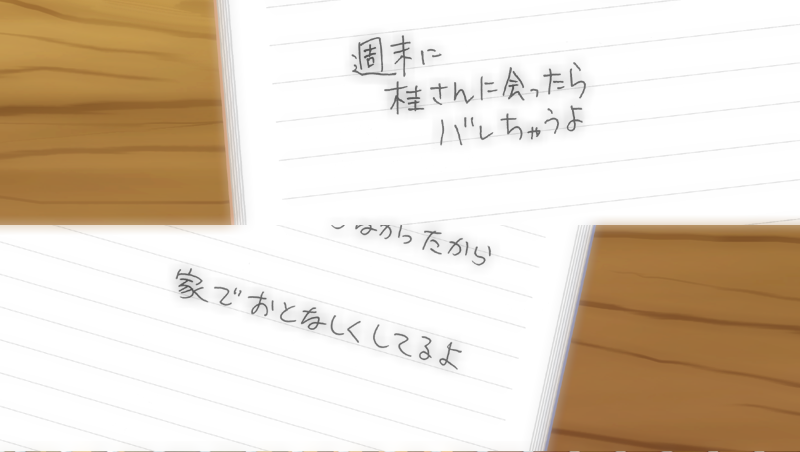 週末に
桂さんに会ったら
バレちゃうよ
なかったから
家でおとなしくしてるよ